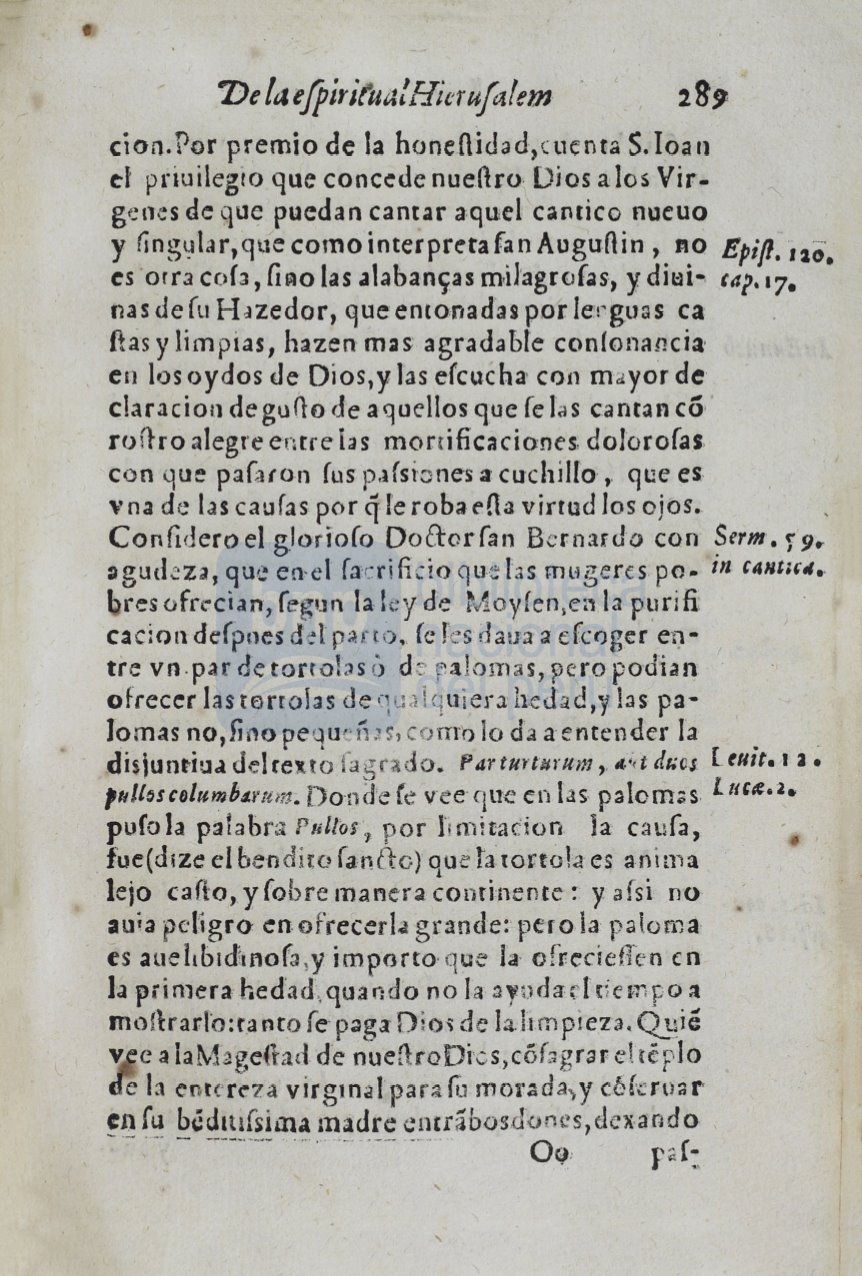 De la eſpiritual Hieruſalem 289
cion. Por premio de la honeſtidad, cuenta S. Ioan
el priuilegio que concede nueſtro Dios a los Vir-
genes de que puedan cantar aquel cantico nueuo
y ſingular, que como interpreta ſan Auguſtin, no
Epiſt. 120.
es otra coſa, ſino las alabanças milagroſas, y diui-
cap. 17.
nas de ſu Hazedor, que entonadas por lenguas ca
ſtas y limpias, hazen mas agradable conſonancia
en los oydos de Dios, y las eſcucha con mayor de
claracion de guſto de aquellos que ſe las cantan cõ
roſtro alegre entre las mortificaciones doloroſas
con que paſaron ſus paſsiones a cuchillo, que es
vna de las cauſas por q̃ le roba eſta virtud los ojos.
Conſidero el glorioſo Doctor ſan Bernardo con
Serm. 59.
agudeza, que en el ſacrificio que las mugeres po-
in cantica.
bres ofrecian, ſegun la ley de Moyſen, en la purifi
cacion deſpues del parto, ſe les daua a eſcoger en-
tre vn par de tortolas ò de palomas, pero podian
ofrecer las tortolas de qualquiera hedad, y las pa-
lomas no, ſino pequeñas, como lo da a entender la
disjuntiua del texto ſagrado. Par turturum, aut duos
Leuit. 12.
pullos columbarum. Donde ſe vee que en las palomas
Lucæ. 2.
puſo la palabra Pullos, por limitacion la cauſa,
fue (dize el bendito ſancto) que la tortola es anima
lejo caſto, y ſobre manera continente: y aſsi no
auia peligro en ofrecerla grande: pero la paloma
es aue libidinoſa, y importo que la ofrecieſſen en
la primera hedad, quando no la ayuda el tiempo a
moſtrarſo: tanto ſe paga Dios de la limpieza. Quiẽ
vee a la Mageſtad de nueſtro Dios, cõſagrar el tẽplo
de la entereza virginal para ſu morada, y cõſeruar
en ſu bẽdituſsima madre entrãbos dones, dexando
Oo paſ-